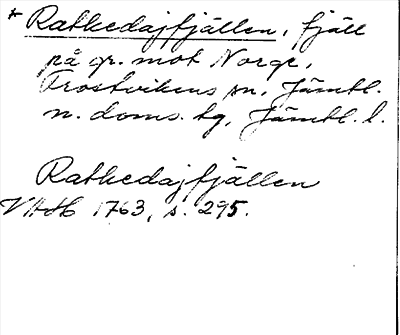 * Rathedajfjällen, fjäll
på gr. mot Norge,
Frostvikens sn, Jämtl.
n. doms. tg, Jämtl. l.
Rathedajfjällen
VAH 1763, s. 295.